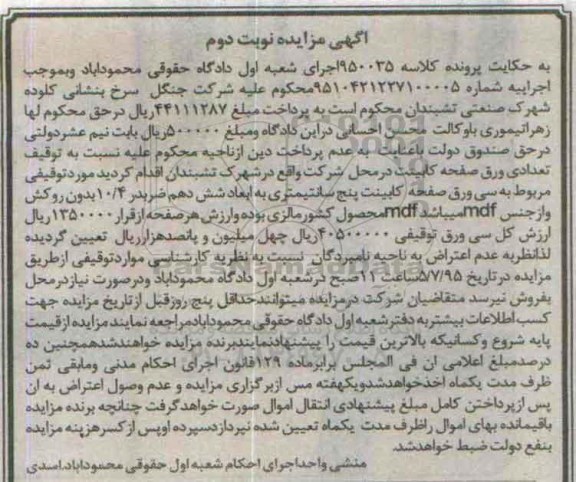 آگهی مزایده نوبت دوم
به حکایت پرونده کلاسه ۹۵۰۰۳۵اجرای شعبه اول دادگاه حقوقی محموداباد وبموجب
اجراییه شماره ۹۵۱۰۴۲۱۲۳۷۱۰۰۰۰۵محکوم علیه شرکت جنگل سرخ بنشانی کلوده
شهرک صنعتی تشبندان محکوم است به پرداخت مبلغ ۴۴۱۱۱۲۸۷ریال درحق محکوم لها
زهراتیموری باوکالت محسن احسانی دراین دادگاه ومبلغ ۵۰۰۰۰۰ریال بابت نیم عشردولتی
درحق صندوق دولت باعنایت به عدم پرداخت دین ازناحیه محکوم علیه نسبت به توقیف
تعدادی ورق صفحه کابینت درمحل شرکت واقع درشهرک تشبندان اقدام گردید موردتوقیفی
مربوط به سی ورق صفحه کابینت پنج سانتیمتری به ابعاد شش دهم ضربدر ۱۰/۴بدون روکش
وازجنس mdfمیباشد mdfمحصول کشورمالزی بوده وارزش هرصفحه ازقرار ۱۳۵۰۰۰۰ ریال
ارزش کل سی ورق توقیفی ۴۰۵۰۰۰۰۰ریال چهل میلیون و پانصدهزارریال تعیین گردیده
لذانظربه عدم اعتراض به ناحیه نامبردگان نسبت به نظریه کارشناسی مواردتوقیفی ازطریق
مزایده درتاریخ ۵/۷/۹۵ساعت ۱۱صبح درشعبه اول دادگاه محموداباد ودرصورت نیازدرمحل
بفروش نیرسد متقاضیان شرکت درمزایده میتوانندحداقل پنج روزقبل ازتاریخ مزایده جهت
کسب اطلاعات بیشتربه دفترشعبه اول دادگاه حقوقی محمودابادمراجعه نمایندمزایده ازقیمت
پایه شروع وکسانیکه بالاترین قیمت را پیشنهادنمایندبرنده مزایده خواهندشدهمچنین ده
درصدمبلغ اعلامی ان فی المجلس برابرماده ۱۲۹قانون اجرای احکام مدنی ومابقی ثمن
ظرف مدت یکماه اخذخواهدشدویکهفته مس ازبرگزاری مزایده و عدم وصول اعتراض به ان
پس ازپرداختن کامل مبلغ پیشنهادی انتقال اموال صورت خواهدگرفت چنانچه برنده مزایده
باقیمانده بهای اموال راظرف مدت یکماه تعیین شده نپردازدسپرده اوپس ازکسرهزینه مزایده
بنفع دولت ضبط خواهدشد.
منشی واحداجرای احکام شعبه اول حقوقی محموداباد.اسدی